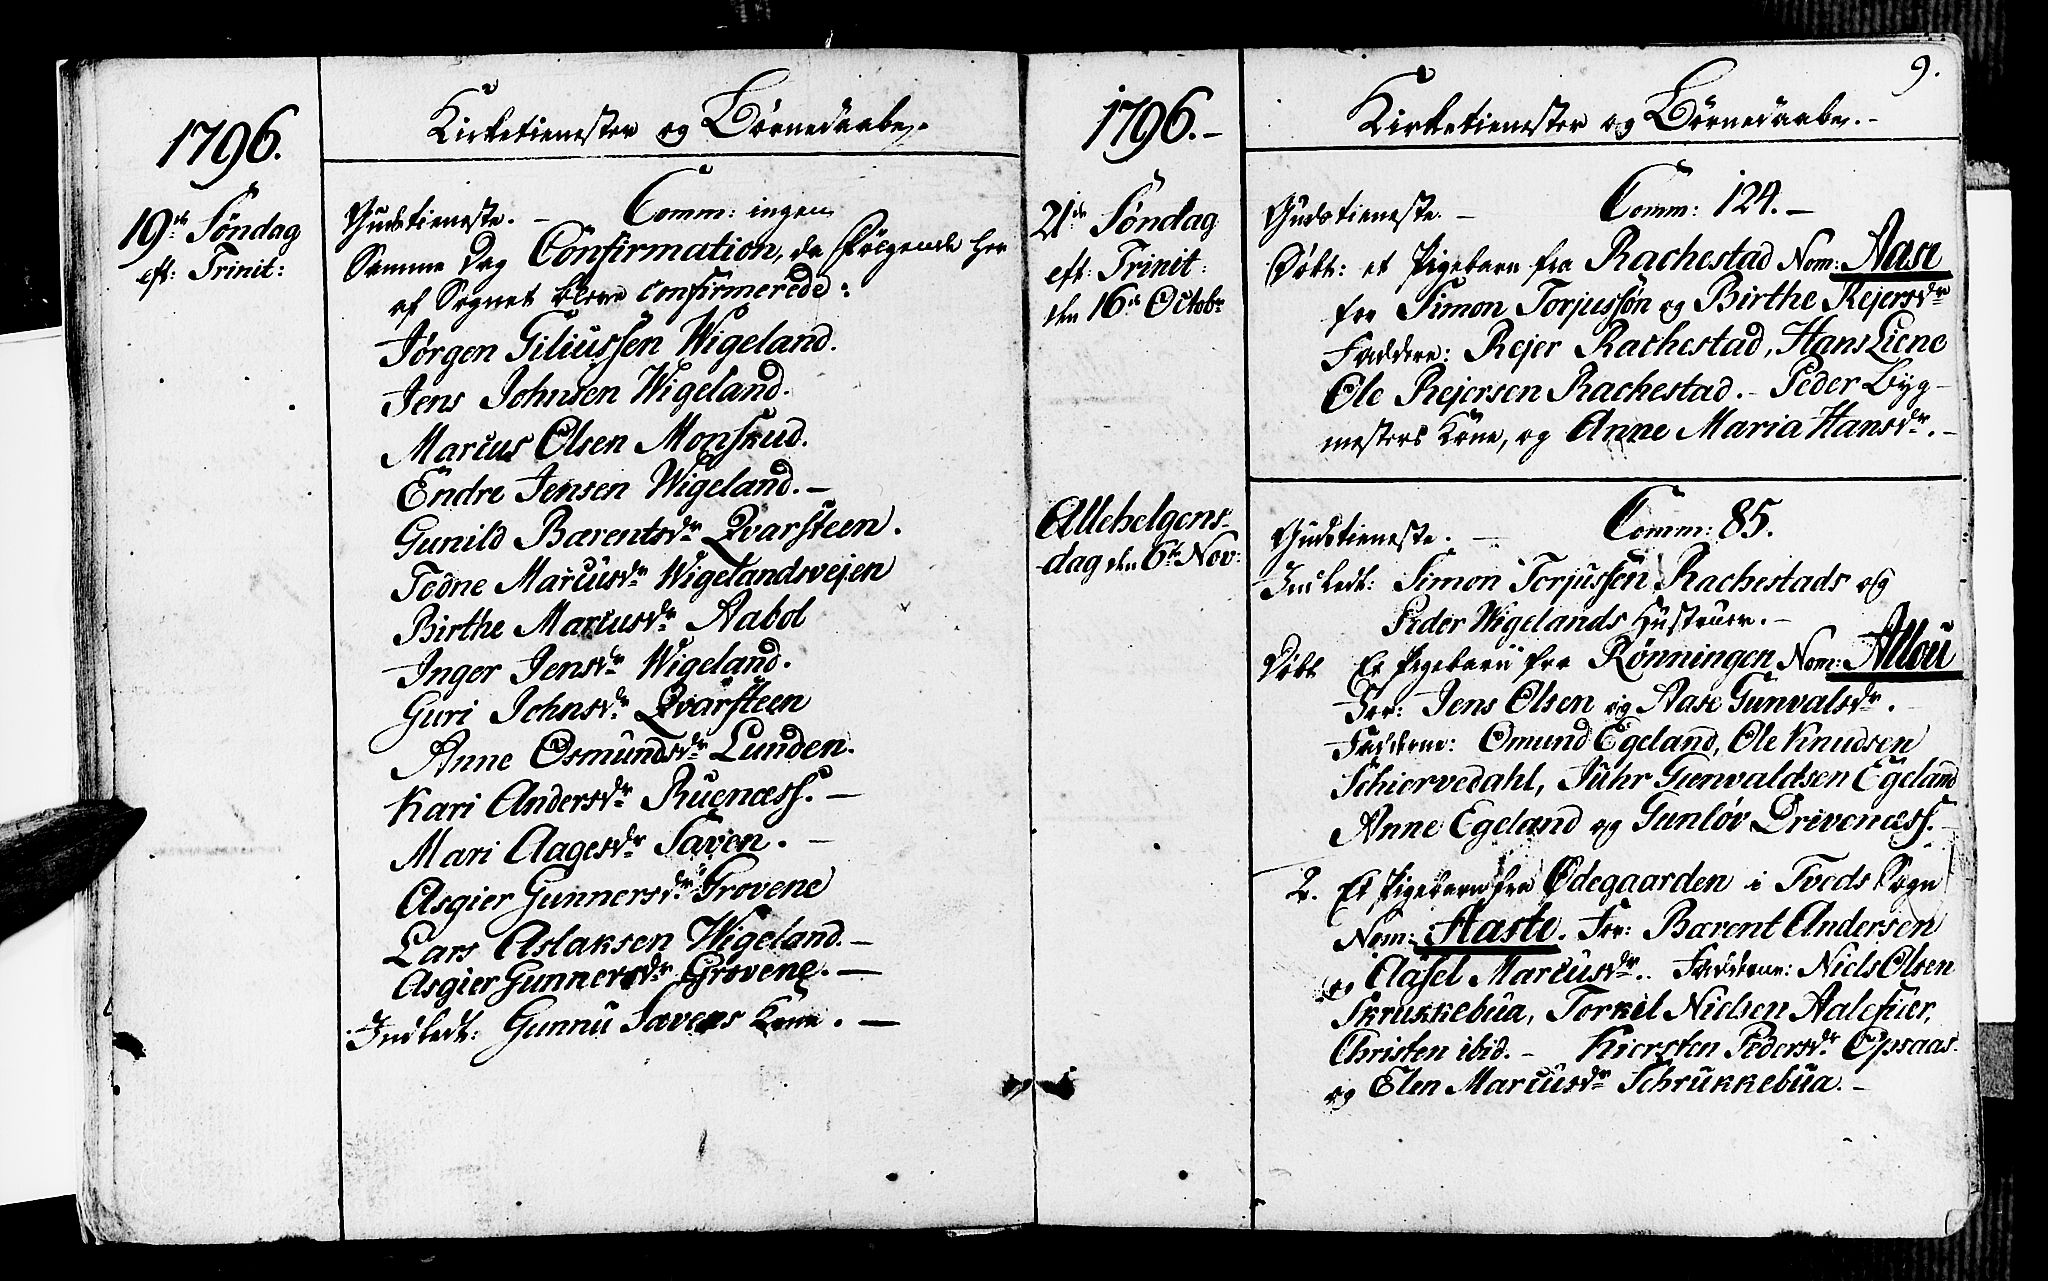 1796.
Kirketienester og Börnedaabe.
19de Söndag
eft: Trinit:
Gudstieneste. – Comm: ingen
Samme Dag Confirmation, da følgende her
af Sognet bleve confirmerede:
Jörgen Giliussen Wigeland.
Jens Johnsen Wigeland.
Marcus Olsen Monskud.
Endre Jensen Wigeland. –
Gunild Bærentsdr Qvarsteen.
Todne Marcusdr Wigelandsvejen
Birthe Marcusdr Aabol
Inger Jensdr Wigeland.
Guri Johnsdr Qvarsteen
Anne Osmundsdr Lunden.
Kari Andersdr Ruenæss. –
Mari Aagesdr Saven. –
Asgier Gunnersdr Grovene
Lars Aslaksen Wigeland. –
Asgier Gunnersdr Grovene. –
Indledt: Gunnu Sævens Kone. –
9.
1796. –
Kirketienester og Börnedaabe. –
21de Söndag
eft: Trinit:
den 16de Octobr
Gudstieneste. – Comm: 124. –
Döbt: et Pigebarn fra Rachestad Nom: Aase
for: Simon Torjussön og Birthe Rejersdr
Faddere: Rejer Rachestad, Hans Liene
Ole Rejersen Rachestad. – Peder Byg-
mesters Kone, og Anne Maria Hansdr. –
Allehelgens-
dag den 6te Nov:
Gudstieneste. – Comm: 85.
Indledt: Simon Torjussen Rachestads og
Peder Wigelands Hustruer. –
Döbt Et Pigebarn fra Rönningen Nom: Allou
For: Jens Olsen og Aase Gunvalsdr.
Fadderne: Omund Egeland, Ole Knudsen
Schiervedahl, Juhr Gunvaldsen Egeland
Anne Egeland og Gunlöv Drivenæss. –
2. Et Pigebarn fra Ødegaarden i Tveds Sogn
Nom: Aaste. For: Bærent Andersen
og Aasel Marcusdr. Fadderne: Niels Olsen
Skrukkebua, Torkel Nielsen Aalefier,
Christen ibid. – Kiersten Pedersdr Opsaas
og Elen Marcusdr Schrukkebua. –